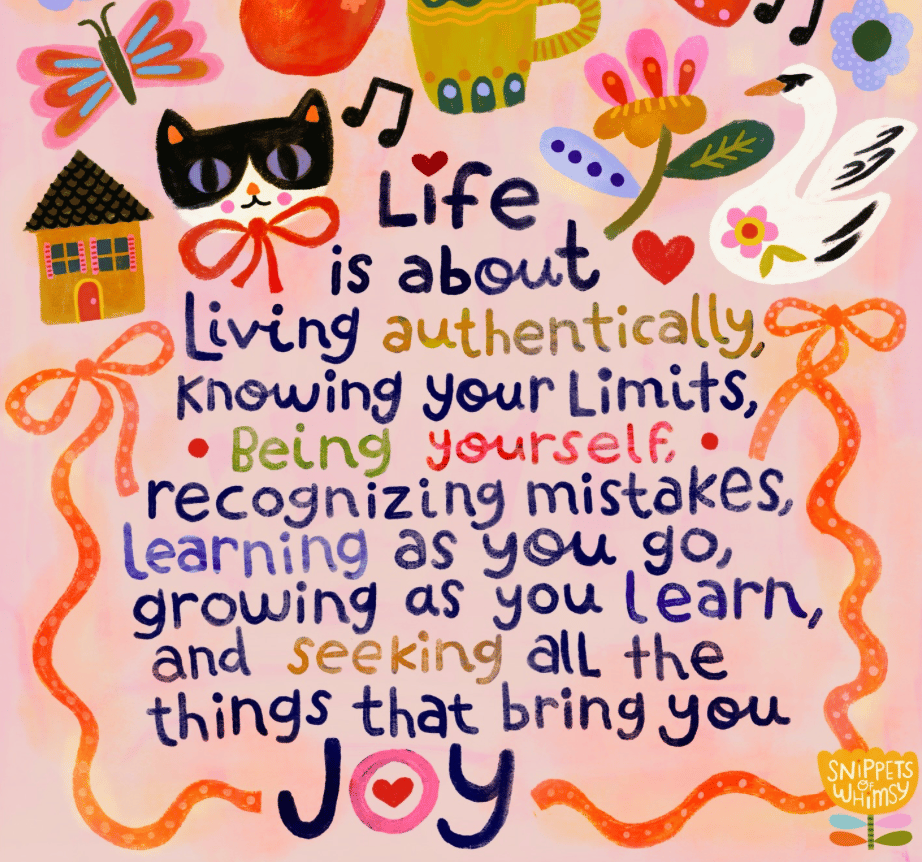 Life
is about
Living authentically,
Knowing your Limits,
• Being yourself, •
recognizing mistakes,
learning as you go,
growing as you learn,
and seeking all the
things that bring you
JOY
SNIPPETS
OF
WHIMSY